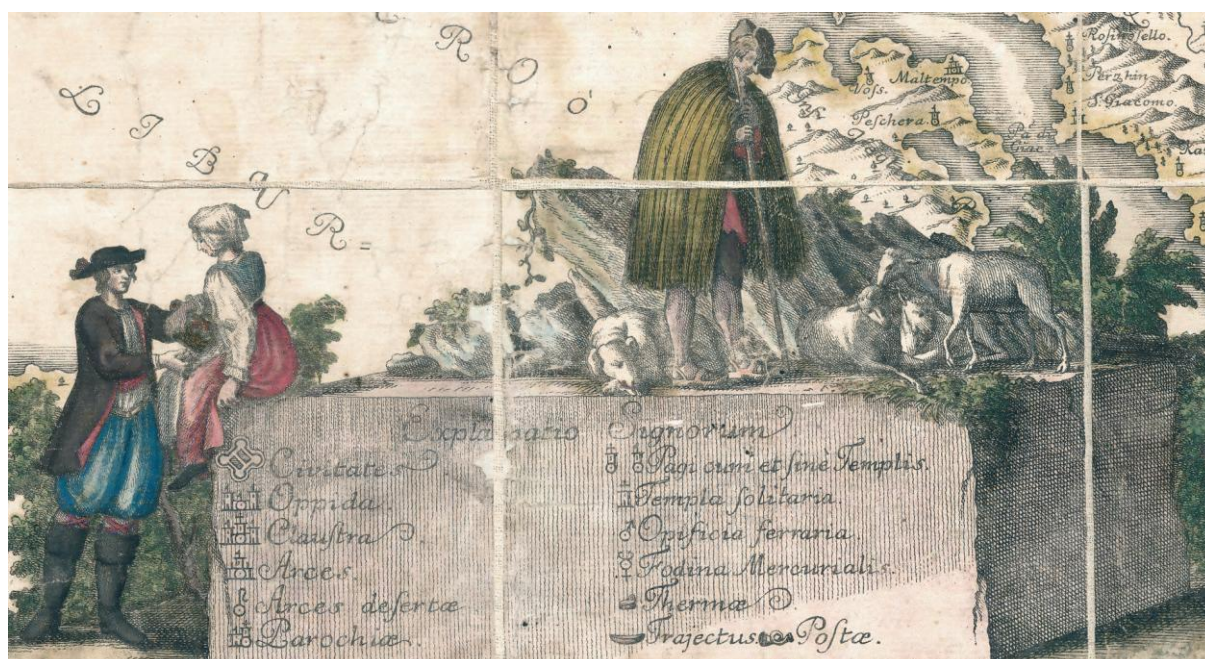 R O
Rosinosello.
Maltempo
Voss.
Perghin
Peschera.
S. Giacomo.
L I B U R =
Explanatio Signorum
Civitates
Oppida.
Claustra.
Arces.
Arces desertæ
Parochiæ.
Pagi cum et sine Templis.
Templa solitaria
Opificia ferraria.
Fodina Mercurialis.
Thermæ
Trajectus Postæ.